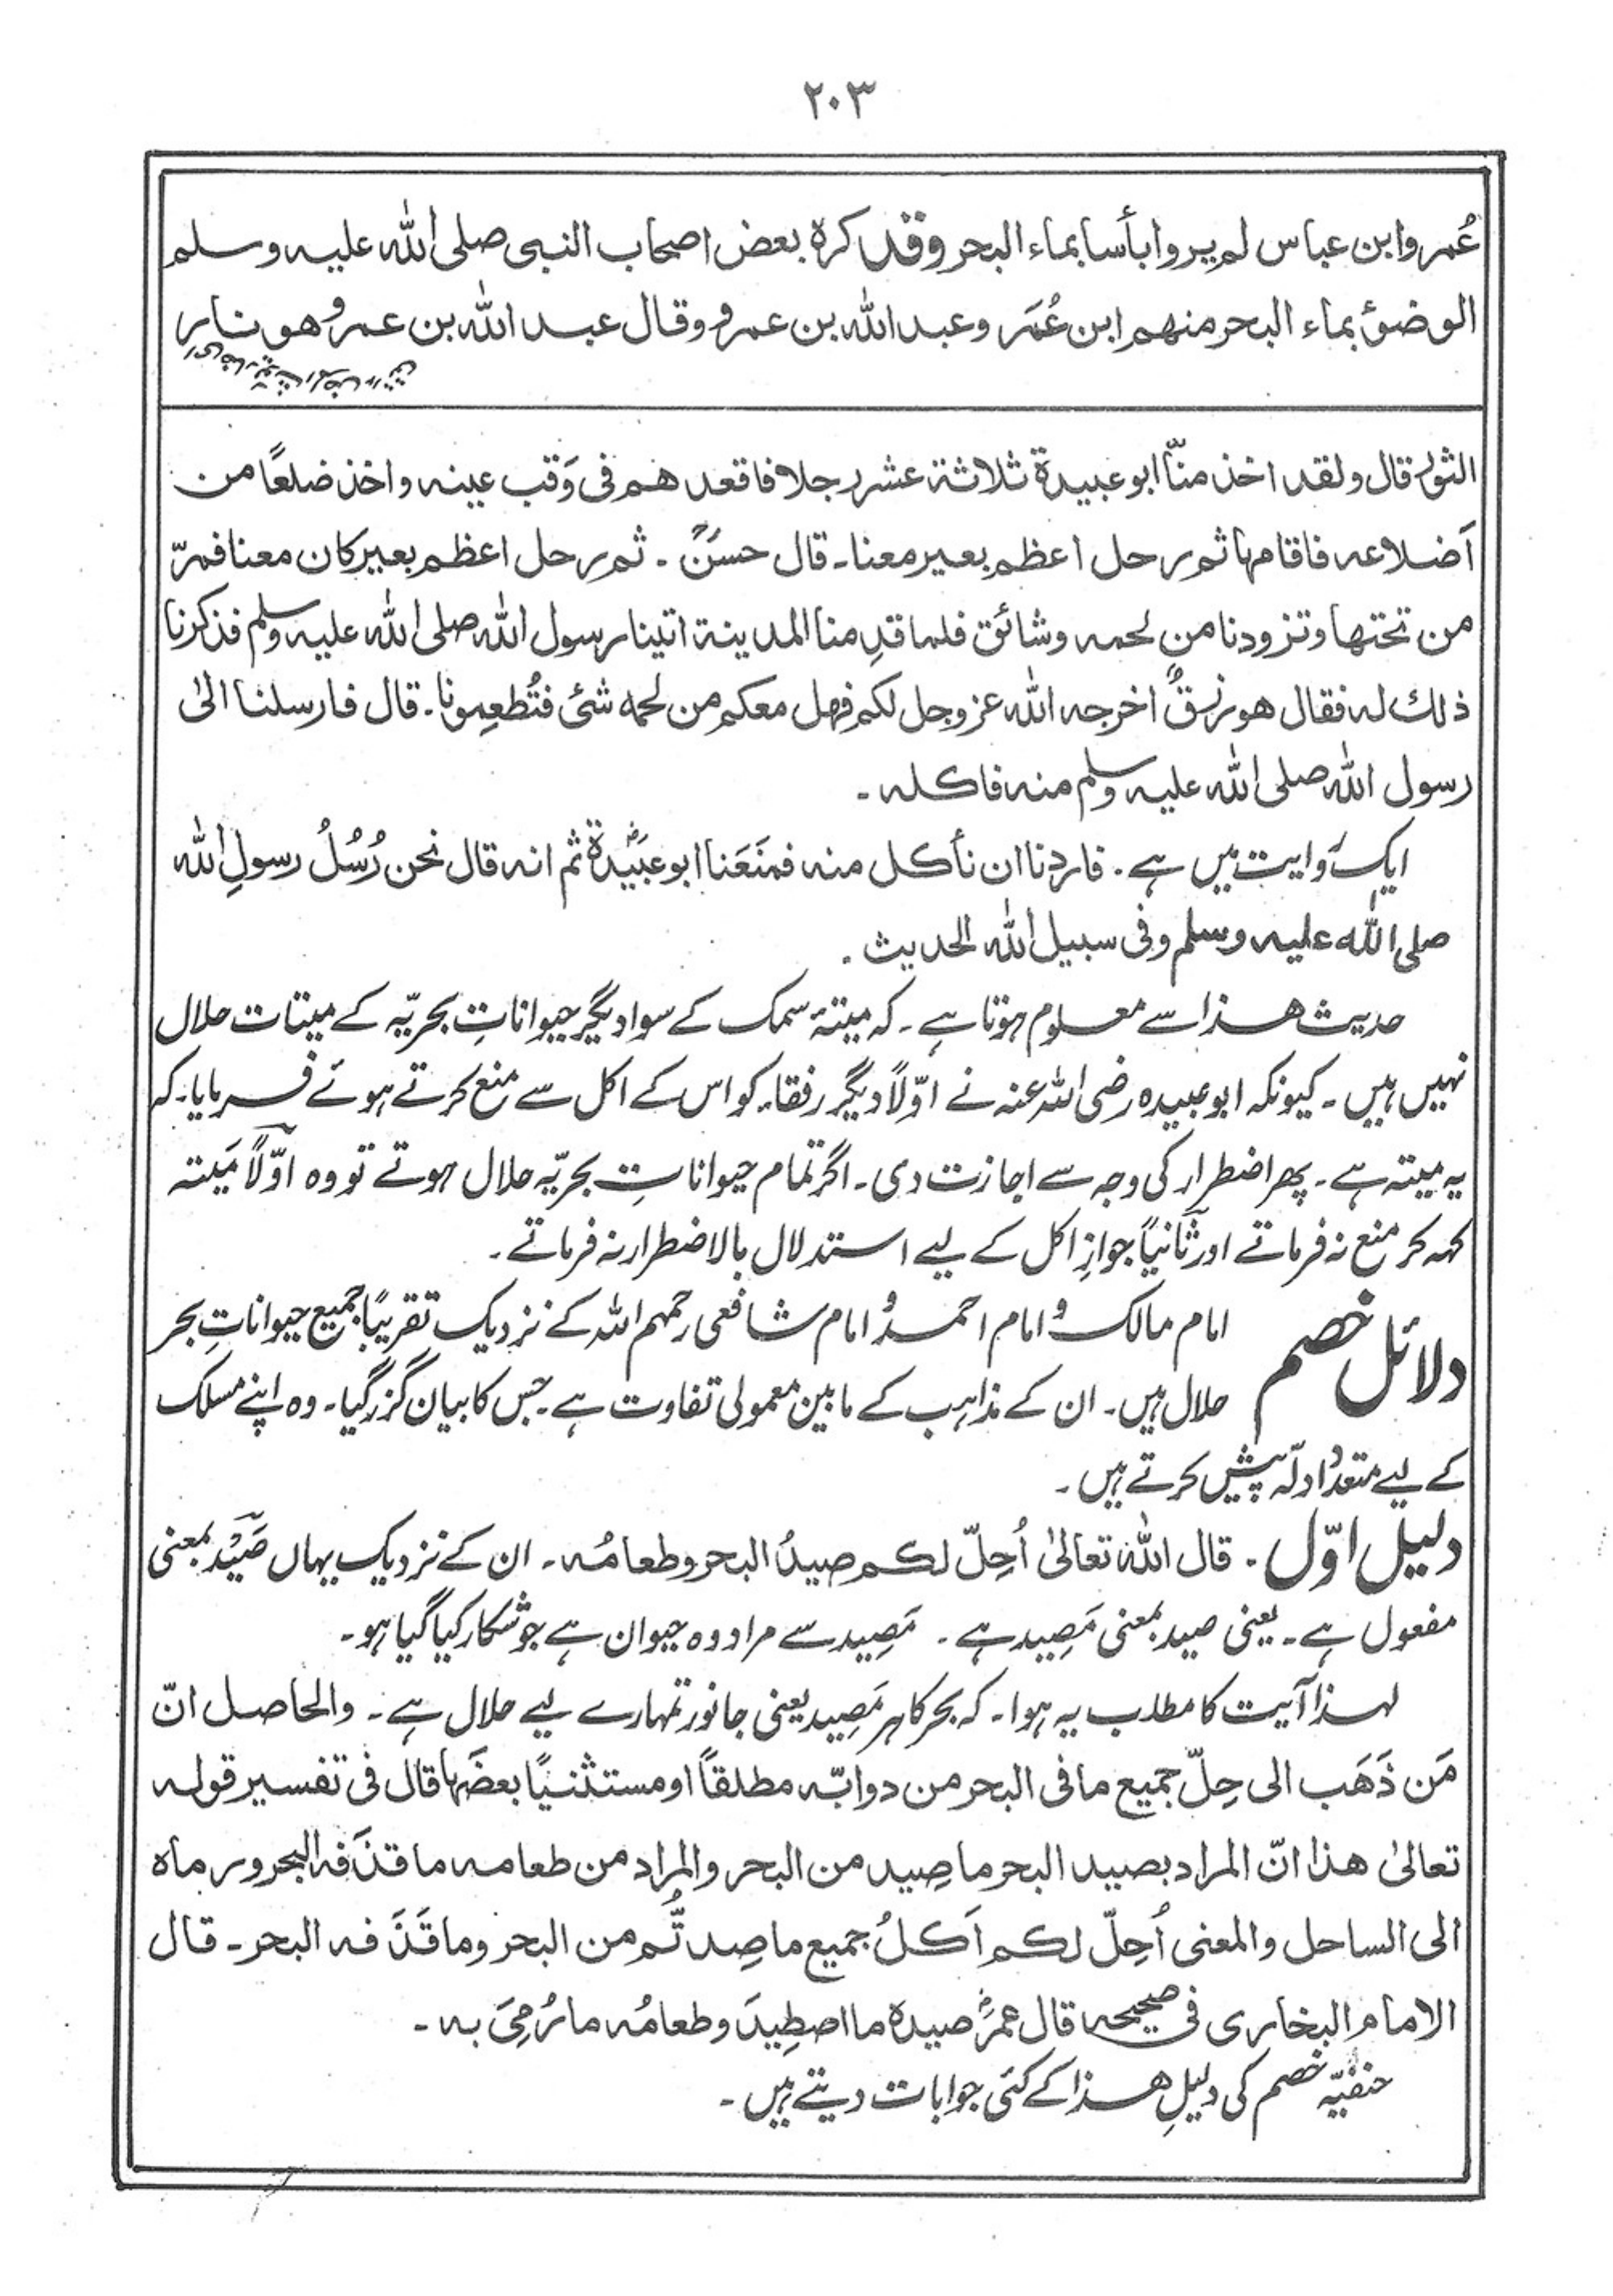 ۲۰۳
عُمر وابن عباس لم يروا بأسا بماء البحر وقد كره بعض اصحاب النبی صلی الله عليه وسلم
الوضوٴ بماء البحر منهم ابن عُمَر وعبد الله بن عمرو وقال عبد الله بن عمرو هو نار
الثور قال ولقد اخذ منّا ابو عبيدة ثلاثة عشر رجلا فاقعدهم فی وَقب عينه واخذ ضلعًا من
اَضلاعه فاقامها ثم رحل اعظم بعير معنا۔ قال حسَنٌ ۔ ثم رحل اعظم بعير كان معنا فمرّ
من تحتها وتزودنا من لحمه وشائق فلما قدِمنا المدينة اتينا رسول الله صلی الله عليه وسلم فذكرنا
ذلك له فقال هو رزقٌ اخرجه الله عزوجل لكم فهل معكم من لحمه شئ فتُطعِمونا۔ قال فارسلنا الیٰ
رسول الله صلی الله عليه وسلم منه فاكله ۔
ایک روایت میں ہے ۔ فاردنا ان نأكل منه فمنَعَنا ابو عبَيدة ثم انه قال نحن رُسُلُ رسولِ الله
صلی الله عليه وسلم وفی سبيل الله الحديث ۔
حدیث ھٰذا سے معلوم ہوتا ہے ۔ کہ میتۂ سمک کے سوا دیگر حیواناتِ بحریّہ کے میتات حلال
نہیں ہیں ۔ کیونکہ ابو عبیدہ رضی اللہ عنہ نے اوّلاً دیگر رفقاء کو اس کے اکل سے منع کرتے ہوئے فرمایا۔ کہ
یہ میتہ ہے ۔ پھر اضطرار کی وجہ سے اجازت دی ۔ اگر تمام حیواناتِ بحریّہ حلال ہوتے تو وہ اوّلاً مَیتہ
کہہ کر منع نہ فرماتے اور ثانیاً جوازِ اکل کے لیے استدلال بالاضطرار نہ فرماتے ۔
دلائل خصم امام مالکؒ و امام احمدؒ و امام شافعی رحمہم اللہ کے نزدیک تقریبًا جمیع حیواناتِ بحر
حلال ہیں ۔ ان کے مذاہب کے مابین معمولی تفاوت ہے ۔ جس کا بیان گزر گیا ۔ وہ اپنے مسلک
کے لیے متعدد ادلّہ پیش کرتے ہیں ۔
دلیل اوّل ۔ قال الله تعالیٰ اُحِلّ لكم صيدُ البحر وطعامُه ۔ ان کے نزدیک یہاں صَیْد بمعنی
مفعول ہے ۔ یعنی صید بمعنی مَصِید ہے ۔ مَصِید سے مراد وہ حیوان ہے جو شکار کیا گیا ہو ۔
لہٰذا آیت کا مطلب یہ ہوا ۔ کہ بحر کا ہر مَصِید یعنی جانور تمہارے لیے حلال ہے ۔ والحاصل انّ
مَن ذَهَب الی حِلّ جميع ما فی البحر من دوابّه مطلقاً او مستثنيًا بعضَها قال فی تفسير قوله
تعالیٰ هذا انّ المراد بصيد البحر ما صِيد من البحر والمراد من طعامه ما قذَفه البحر ورماه
الی الساحل والمعنی اُحِلّ لكم اَكلُ جميع ما صِدتُّم من البحر وما قَذَفه البحر ۔ قال
الامام البخاری فی صحيحه قال عمرؓ صيده ما اصطِيدَ وطعامُه ما رُمِیَ به ۔
حنفیّہ خصم کی دلیلِ ھٰذا کے کئی جوابات دیتے ہیں ۔